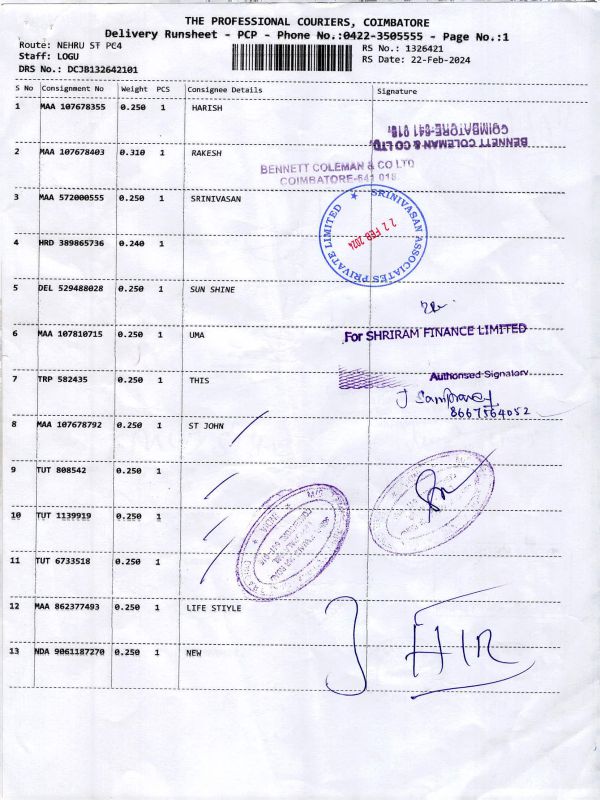 THE PROFESSIONAL COURIERS, COIMBATORE
Delivery Runsheet - PCP - Phone No.:0422-3505555 - Page No.:1
Route: NEHRU ST PC4
RS No.: 1326421
Staff: LOGU
RS Date: 22-Feb-2024
DRS No.: DCJB132642101
S No Consignment No Weight PCS Consignee Details Signature
1 MAA 107678355 0.250 1 HARISH
BENNETT COLEMAN & CO LTD,
COIMBATORE-641 018.
2 MAA 107678403 0.310 1 RAKESH
BENNETT COLEMAN & CO LTD
COIMBATORE-641 018
3 MAA 572000555 0.250 1 SRINIVASAN
SRINIVASAN ASSOCIATES PRIVATE LIMITED
22 FEB 2024
4 HRD 389865736 0.240 1
5 DEL 529488028 0.250 1 SUN SHINE
6 MAA 107810715 0.250 1 UMA
For SHRIRAM FINANCE LIMITED
7 TRP 582435 0.250 1 THIS
Authorised Signatory
8667564052
8 MAA 107678792 0.250 1 ST JOHN
9 TUT 808542 0.250 1
10 TUT 1139919 0.250 1
11 TUT 6733518 0.250 1
12 MAA 862377493 0.250 1 LIFE STIYLE
13 NDA 9061187270 0.250 1 NEW